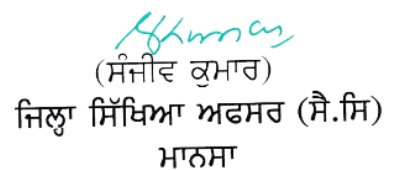 (ਸੰਜੀਵ ਕੁਮਾਰ)
ਜਿਲ੍ਹਾ ਸਿੱਖਿਆ ਅਫਸਰ (ਸੈ.ਸਿ)
ਮਾਨਸਾ